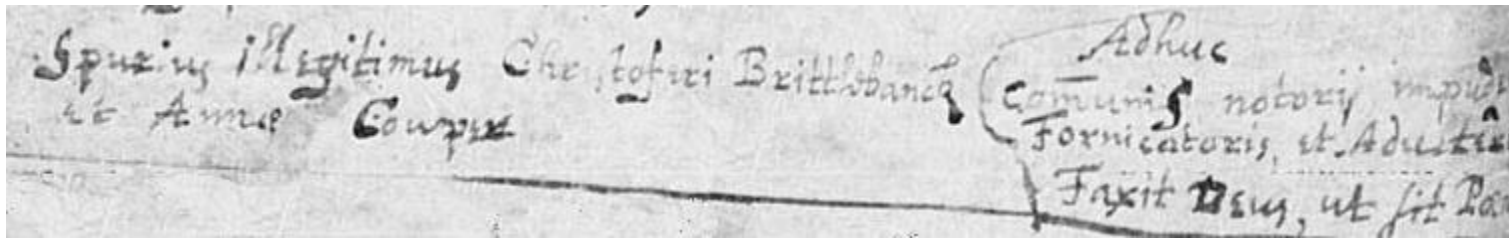 Spurius illegitimus Christoferi Brittlebanck
et Annæ Cowper
Adhuc
Comunis notorij impud
Fornicatoris, et Adulter
Faxit Deus, ut sit